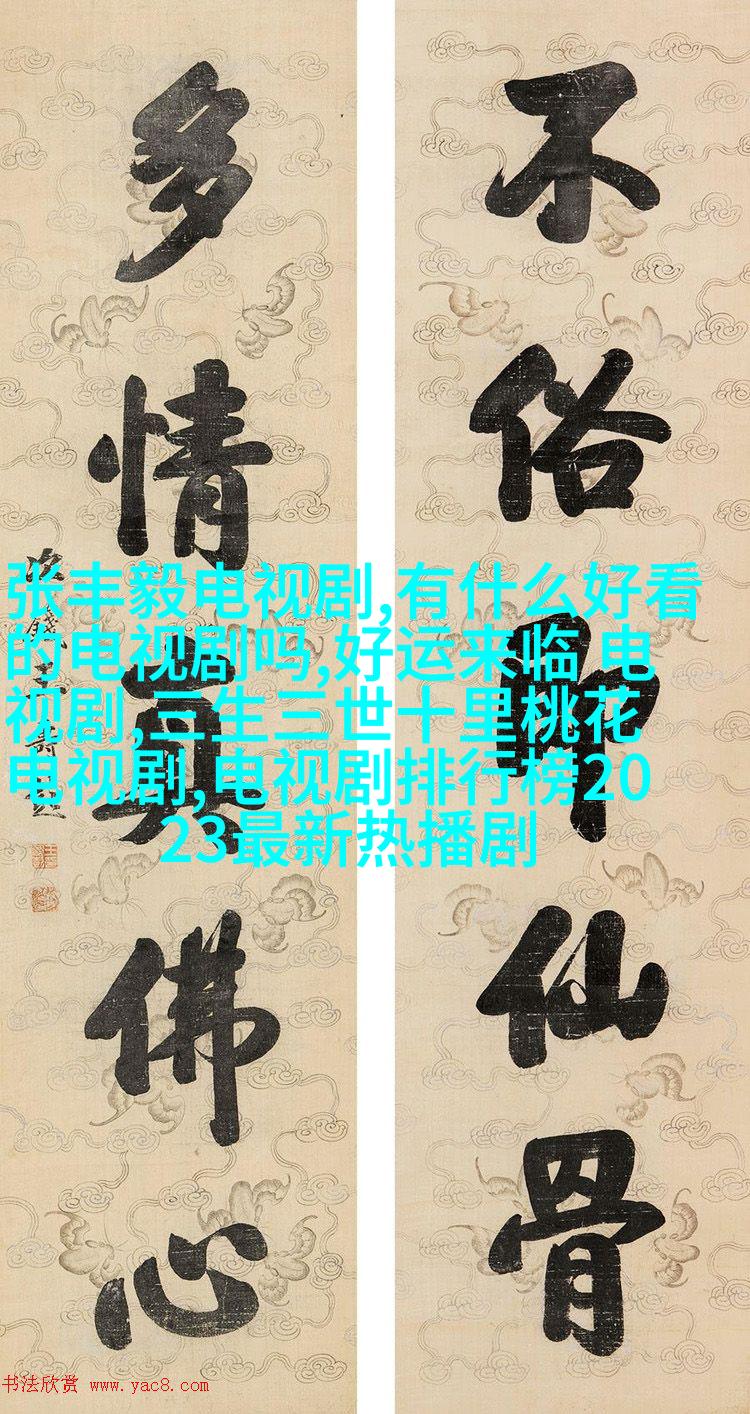 不俗即仙骨
多情真佛心
张丰毅电视剧,有什么好看
的电视剧吗,好运来临 电
视剧,三生三世十里桃花
电视剧,电视剧排行榜20
23最新热播剧
书法欣赏 www.yac8.com